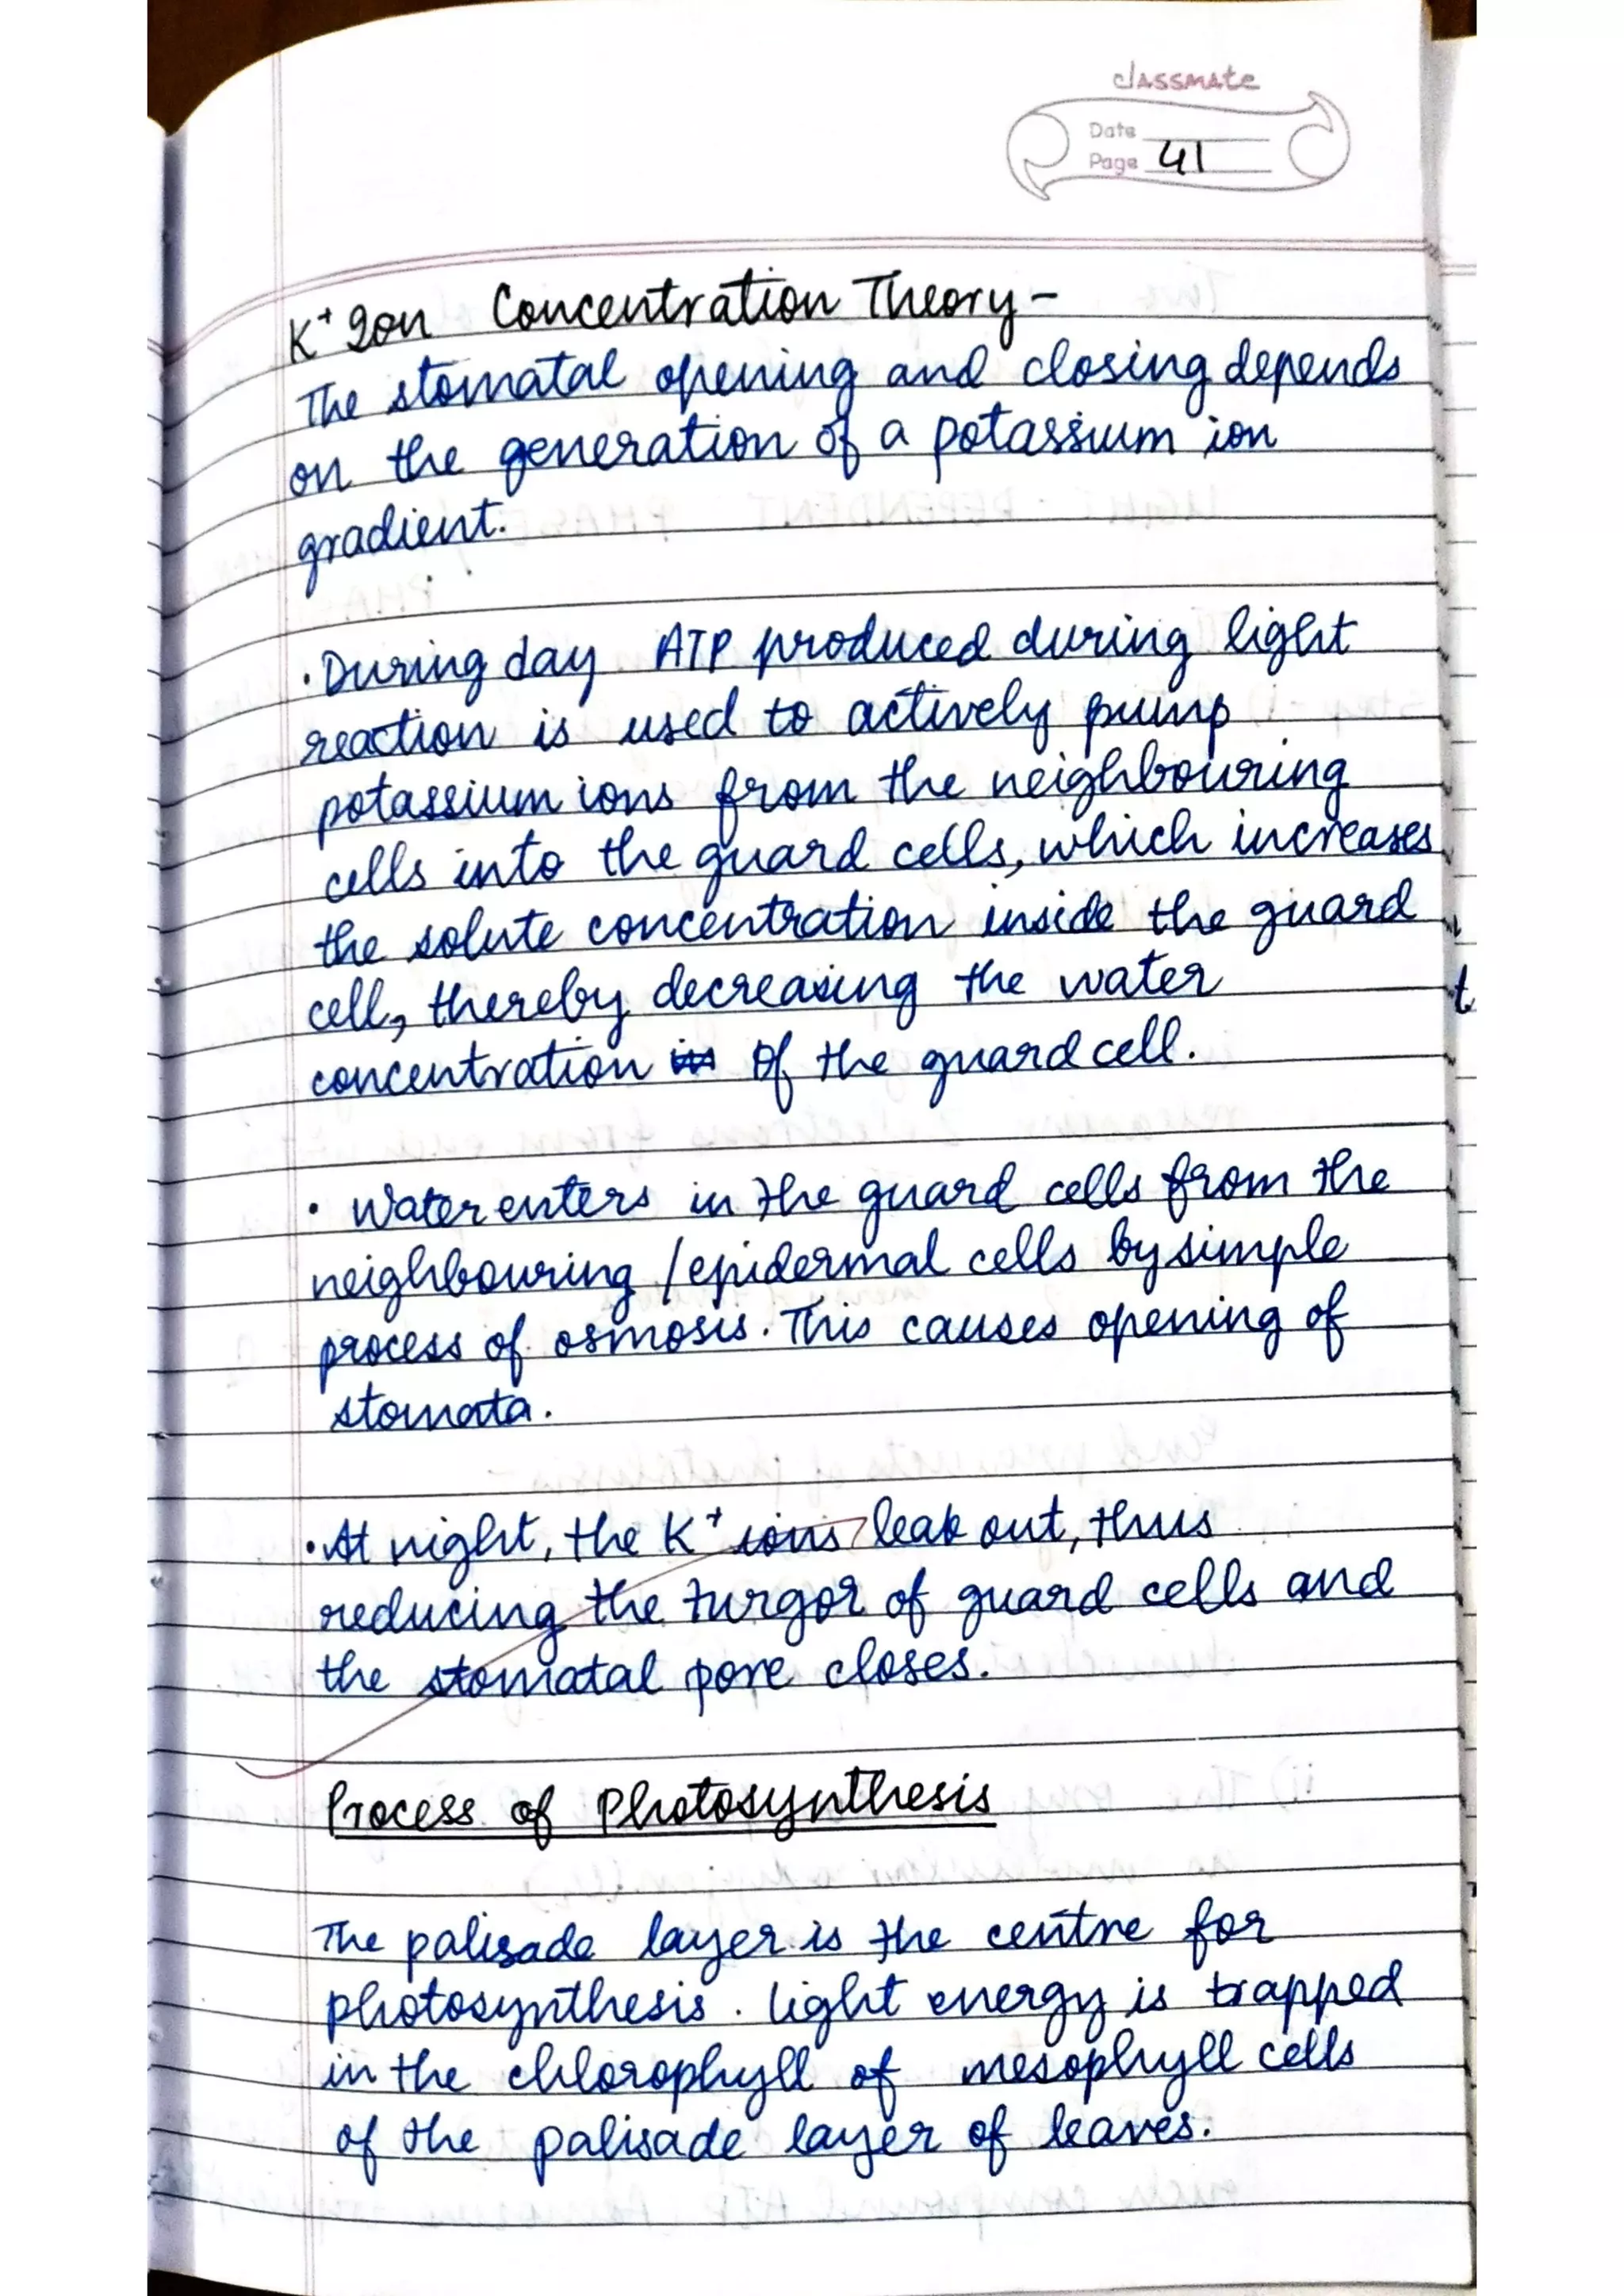 classmate
Date
Page 41
K⁺ Ion Concentration Theory-
The stomatal opening and closing depends
on the generation of a potassium ion
gradient.
• During day ATP produced during light
reaction is used to actively pump
potassium ions from the neighbouring
cells into the guard cells, which increases
the solute concentration inside the guard
cell, thereby decreasing the water
concentration of the guard cell.
• Water enters in the guard cells from the
neighbouring /epidermal cells by simple
process of osmosis. This causes opening of
stomata.
• At night, the K⁺ ions leak out, thus
reducing the turgor of guard cells and
the stomatal pore closes.
Process of Photosynthesis
The palisade layer is the centre for
photosynthesis. light energy is trapped
in the chlorophyll of mesophyll cells
of the palisade layer of leaves.